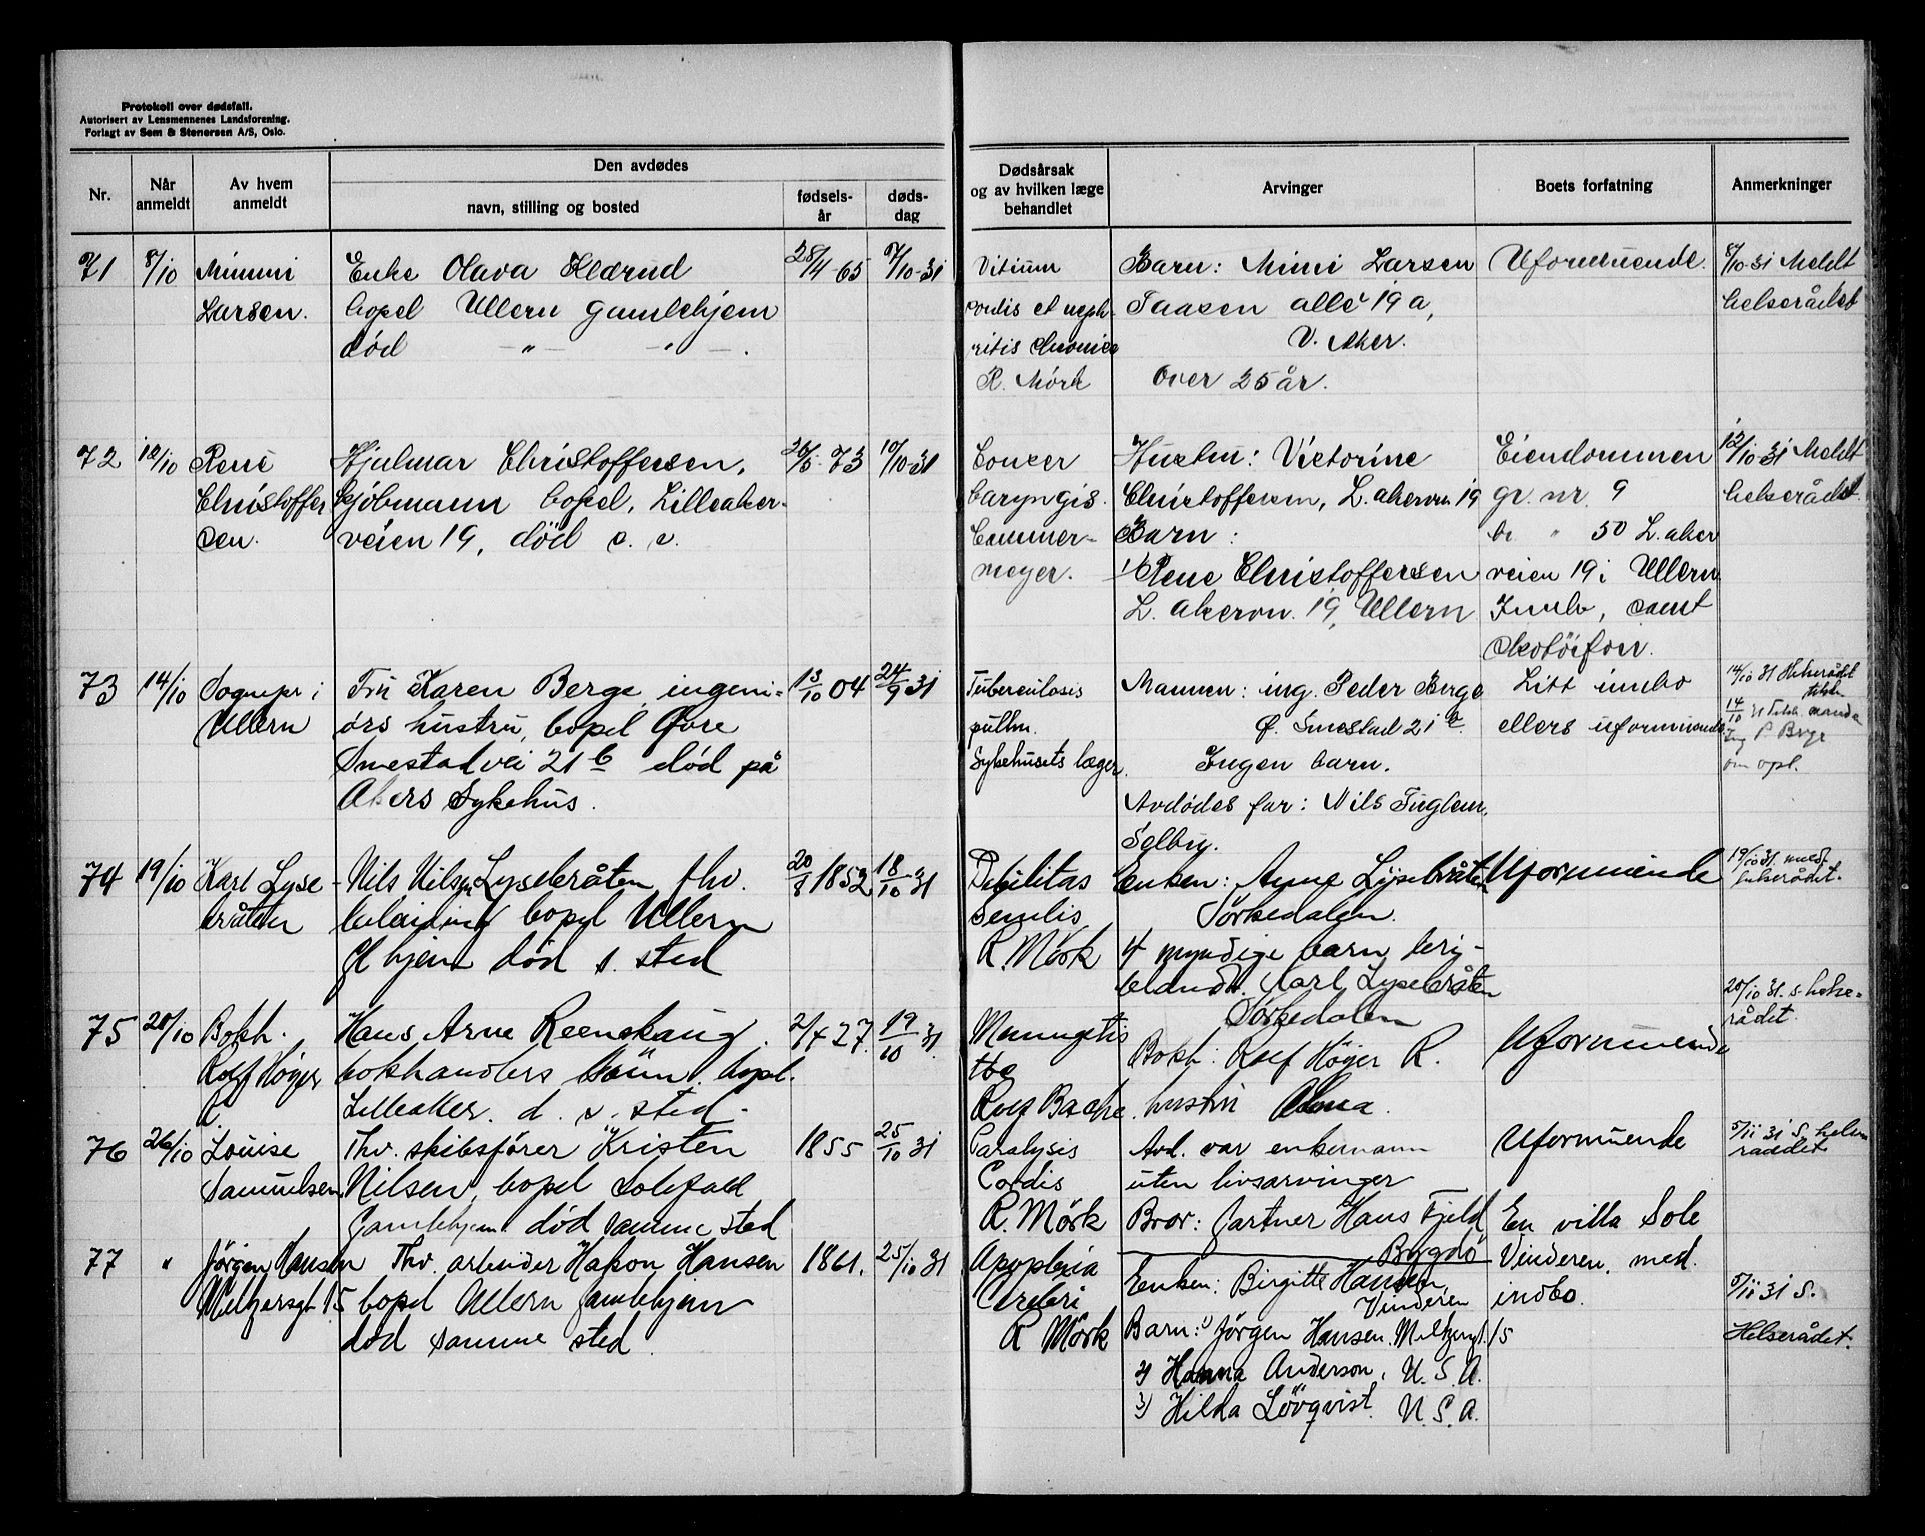 Protokoll over dødsfall.
Autorisert av Lensmennenes Landsforening.
Forlagt av Sem & Stenersen A/S, Oslo.
Nr.
Når anmeldt
Av hvem anmeldt
Den avdødes
navn, stilling og bosted
fødsels-år
døds-dag
Dødsårsak og av hvilken læge behandlet
Arvinger
Boets forfatning
Anmerkninger
71 8/10 Mimmi Enke Olava 28/4-65 7/10-31 Vitium Barn: Mimi Larsen Uformuende. 8/10-31 Meldt
Larsen. bopel Ullern gamlehjem cordis et neph- Taasen allé 19 a, helserådet
død — " — " — . ritis chronica V. Aker.
R. Mörk Over 25 år.
72 12/10 René Hjalmar Christoffersen, 26/5-73 10/10-31 Cancer Hustru: Victorine Eiendommen 12/10-31 Meldt
Christoffer kjöbmann bopel, Lilleaker- laryngis. Christoffersen, L. akervn. 19 gr. nr. 9 helserådet.
sen. veien 19, död s. s. Cammer- Barn: br " 50 L. aker
meyer. 1) Rene Christoffersen veien 19 i Ullern
L. akervn. 19, Ullern Innbo, samt
skotöiforr.
73 14/10 Sognepr i Fru Karen Berge, ingeni- 13/10 04 24/9 31 Tuberculosis Mannen: ing. Peder Berge Litt innbo 14/10 31 Helserådet
Ullern örs hustru, bopel Övre pulm. Ö. Smestad 21 b. ellers uformuende 14/10 31
Smestadvei 21 b död på Sykehusets læger. Ingen barn. P. Berge
Akers Sykehus. Avdödes far: Nils om opl.
Selbu.
74 19/10 Karl Lyse- Nils Nilsen Lysebråten, fhv. 20/8 1852 18/10 31 Debilitas Enken: Anne Lysebråten Uformuende 19/10 31.
bråten bopel Ullern senilis Sörkedalen. helserådet.
Gl hjem död s. sted R. Mörk 4 myndige barn, deri-
blandt Karl Lysebråten
Sörkedalen
75 20/10 Bokh. Hans Arne Reenskaug. 2/4 27. 19/10 31. tbc Bokh: Rolf Höyer R. Uformuende 20/10 31. s. helse-
Rolf Höyer bokhandlers sönn. bopl. rådet.
R Lilleaker. d. s. sted. Rolf Bache. hustru
76 26/10 Louise Fhv. skibsförer Kristen 1855 25/10 31 Paralysis Avd. var enkemann Uformuende 5/11 31 S. helse
Samuelsen Nilsen, bopel Solefald Cordis uten livsarvinger rådet
Gamlehjem död samme sted R. Mörk Bror: Gartner Hans Fjeld En villa Sole
Bygdö
77 " Jörgen Hansen Fhv. arbeider Hakon Hansen 1861. 25/10 31 Apoplexia Enken: Birgitte Hansen Vinderen, med.
Meltzersgt. 15 bopel Ullern Gamlehjem Cerebri Vinderen indbo. 5/11 31 S.
död samme sted R Mörk Barn: 1) Jörgen Hansen, Meltzersgt. 15 Helserådet.
2) Hanna Anderson, U. S. A.
3) Hilda Lövqvist. U. S. A.